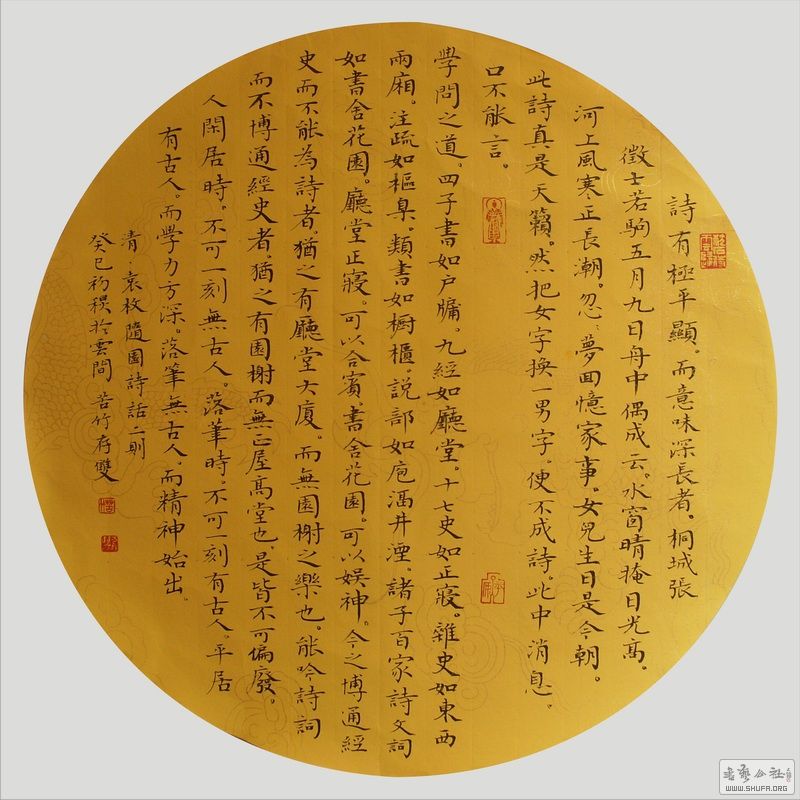 詩有極平顯。而意味深長者。桐城張
徵士若駒五月九日舟中偶成云。水窗晴掩日光高。
河上風寒正長潮。忽〻夢回憶家事。女兒生日是今朝。
此詩真是天籟。然把女字換一男字。便不成詩。此中消息。
口不能言。
學問之道。四子書如户牖。九經如廳堂。十七史如正寢。雜史如東西
兩廂。注疏如樞臬。類書如橱櫃。說部如庖湢井湮。諸子百家詩文詞
如書舍花園。廳堂正寢。可以合賓。書舍花園。可以娱神。今之博通經
史而不能為詩者。猶之有廳堂大厦。而無園榭之樂也。能吟詩詞
而不博通經史者。猶之有園榭而無正屋高堂也。是皆不可偏廢。
人閑居時。不可一刻無古人。落筆時。不可一刻有古人。平居
有古人。而學力方深。落筆無古人。而精神始出。
清·袁枚隨園詩話二則
癸巳初於雲間 苦竹存雙
書藝公社
WWW.SHUFA.ORG